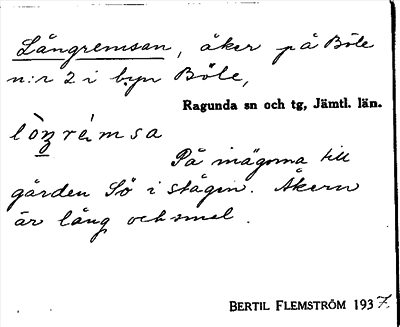 Långremsan, åker på Böle
n:r 2 i byn Böle,
Ragunda sn och tg, Jämtl. län.
lòŋrèmsa
På inägorna till
gården Sö i stägen. Åkern
är lång och smal.
BERTIL FLEMSTRÖM 1937.